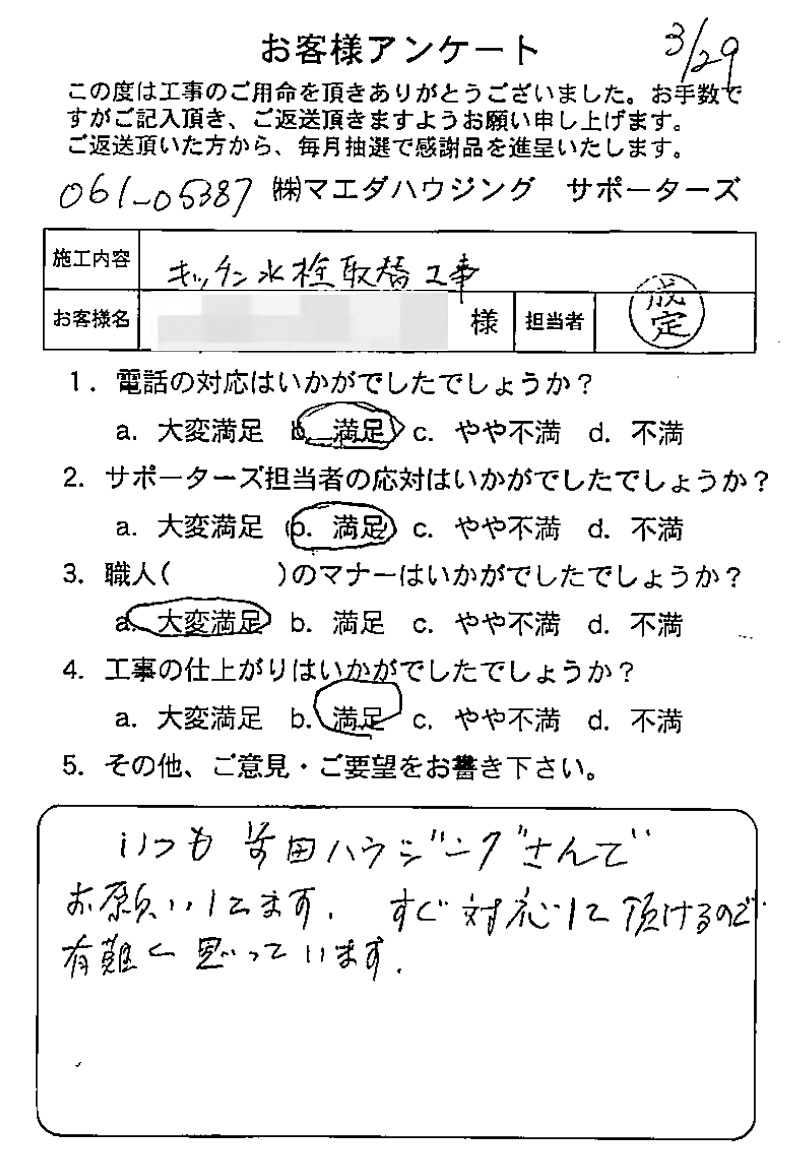 お客様アンケート 3/29
この度は工事のご用命を頂きありがとうございました。お手数で
すがご記入頂き、ご返送頂きますようお願い申し上げます。
ご返送頂いた方から、毎月抽選で感謝品を進呈いたします。
061-05387 ㈱マエダハウジング サポーターズ
施工内容 キッチン水栓取替工事
お客様名 様 担当者 成定
1. 電話の対応はいかがでしたでしょうか？
a. 大変満足 b. 満足 c. やや不満 d. 不満
2. サポーターズ担当者の応対はいかがでしたでしょうか？
a. 大変満足 b. 満足 c. やや不満 d. 不満
3. 職人( )のマナーはいかがでしたでしょうか？
a. 大変満足 b. 満足 c. やや不満 d. 不満
4. 工事の仕上がりはいかがでしたでしょうか？
a. 大変満足 b. 満足 c. やや不満 d. 不満
5. その他、ご意見・ご要望をお書き下さい。
いつも前田ハウジングさんで
お願いしてます. すぐ対応して頂けるので
有難く思っています.